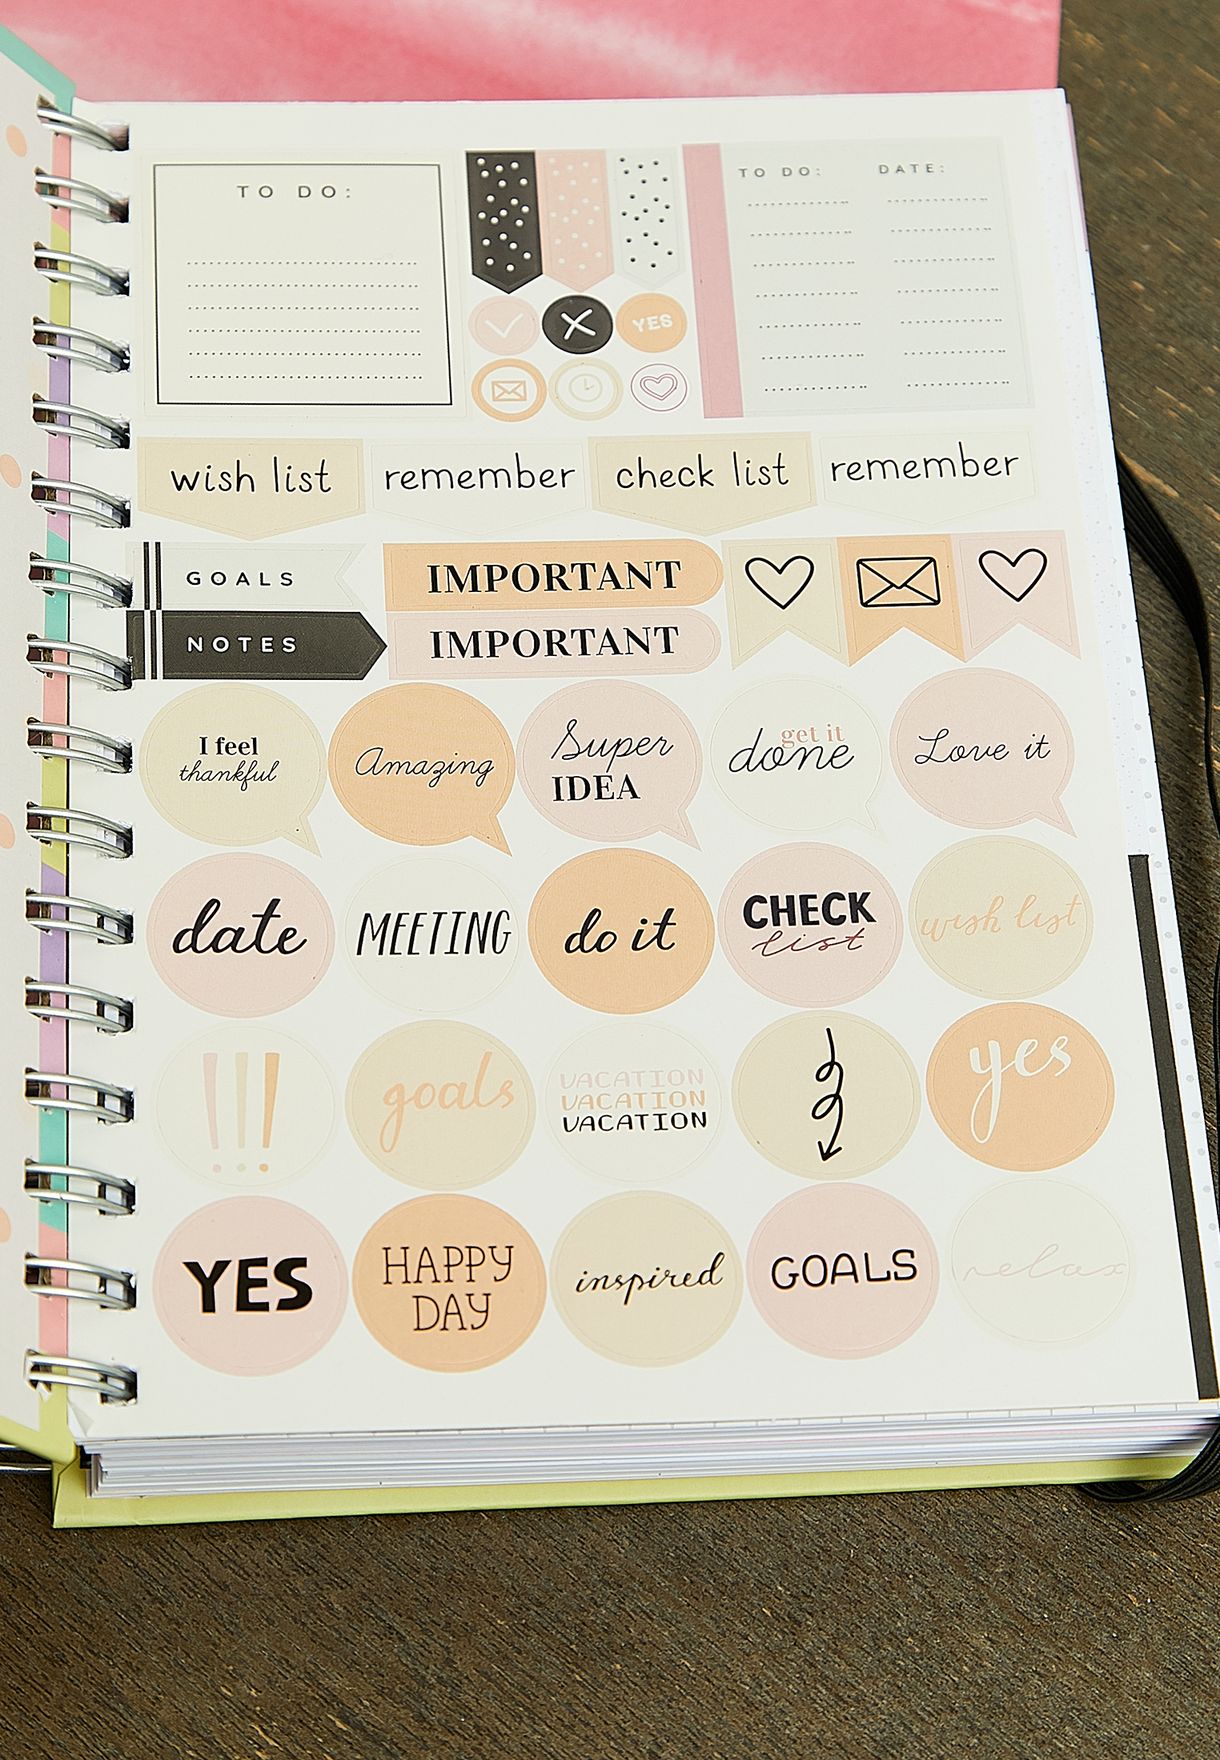 TO DO:
TO DO: DATE:
YES
wish list remember check list remember
GOALS IMPORTANT
NOTES IMPORTANT
I feel
thankful
Amazing
Super
IDEA
get it
done
Love it
date
MEETING
do it
CHECK
list
wish list
!!!
goals
VACATION
VACATION
VACATION
yes
YES
HAPPY
DAY
inspired
GOALS
relax